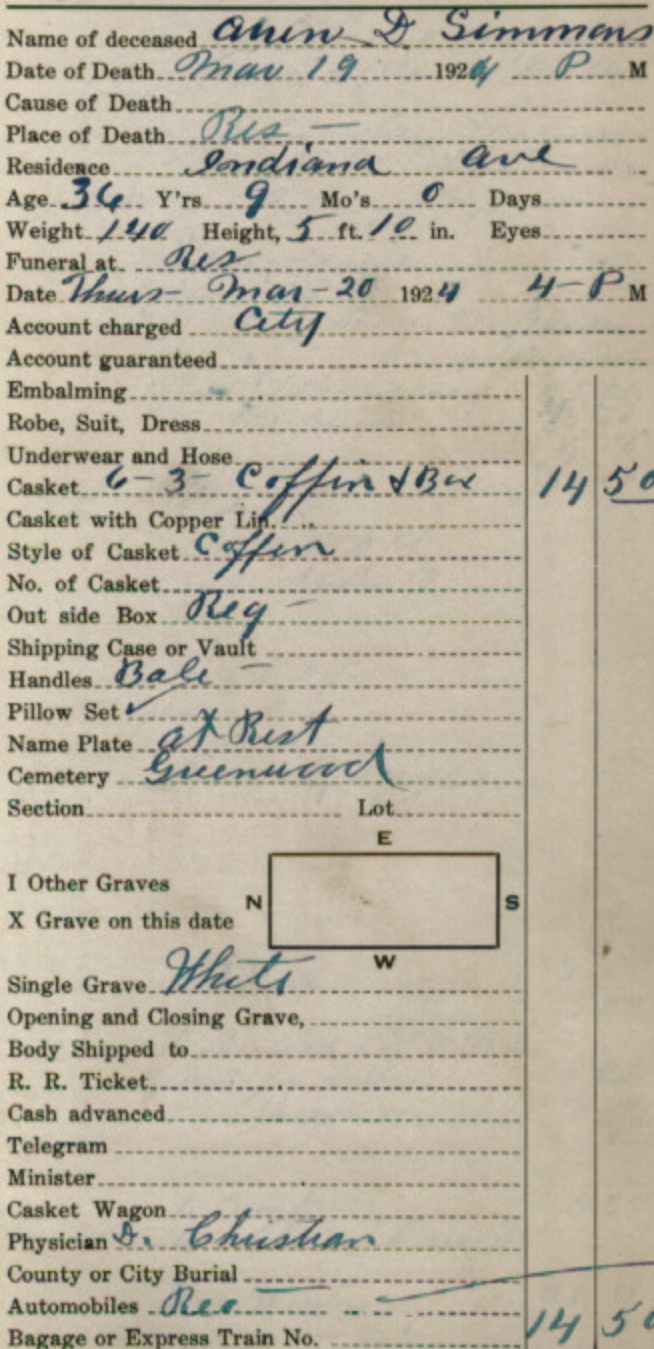 Name of deceased Allen D Simmons
Date of Death Mar 19 1924 P M
Cause of Death
Place of Death Res -
Residence Indiana Ave
Age 36 Y'rs 9 Mo's 0 Days
Weight 140 Height, 5 ft. 10 in. Eyes
Funeral at Res
Date Thurs - Mar - 20 1924 4 - P M
Account charged City
Account guaranteed
Embalming
Robe, Suit, Dress
Underwear and Hose
Casket 6 - 3 - Coffin & Box 14 50
Casket with Copper Lin.
Style of Casket Coffin
No. of Casket
Out side Box Reg -
Shipping Case or Vault
Handles Bale -
Pillow Set ✓
Name Plate at Rest
Cemetery Greenwood
Section Lot
E
I Other Graves
N S
X Grave on this date
W
Single Grave White
Opening and Closing Grave,
Body Shipped to
R. R. Ticket
Cash advanced
Telegram
Minister
Casket Wagon
Physician D. Christian
County or City Burial
Automobiles Reo
Bagage or Express Train No. 14 50